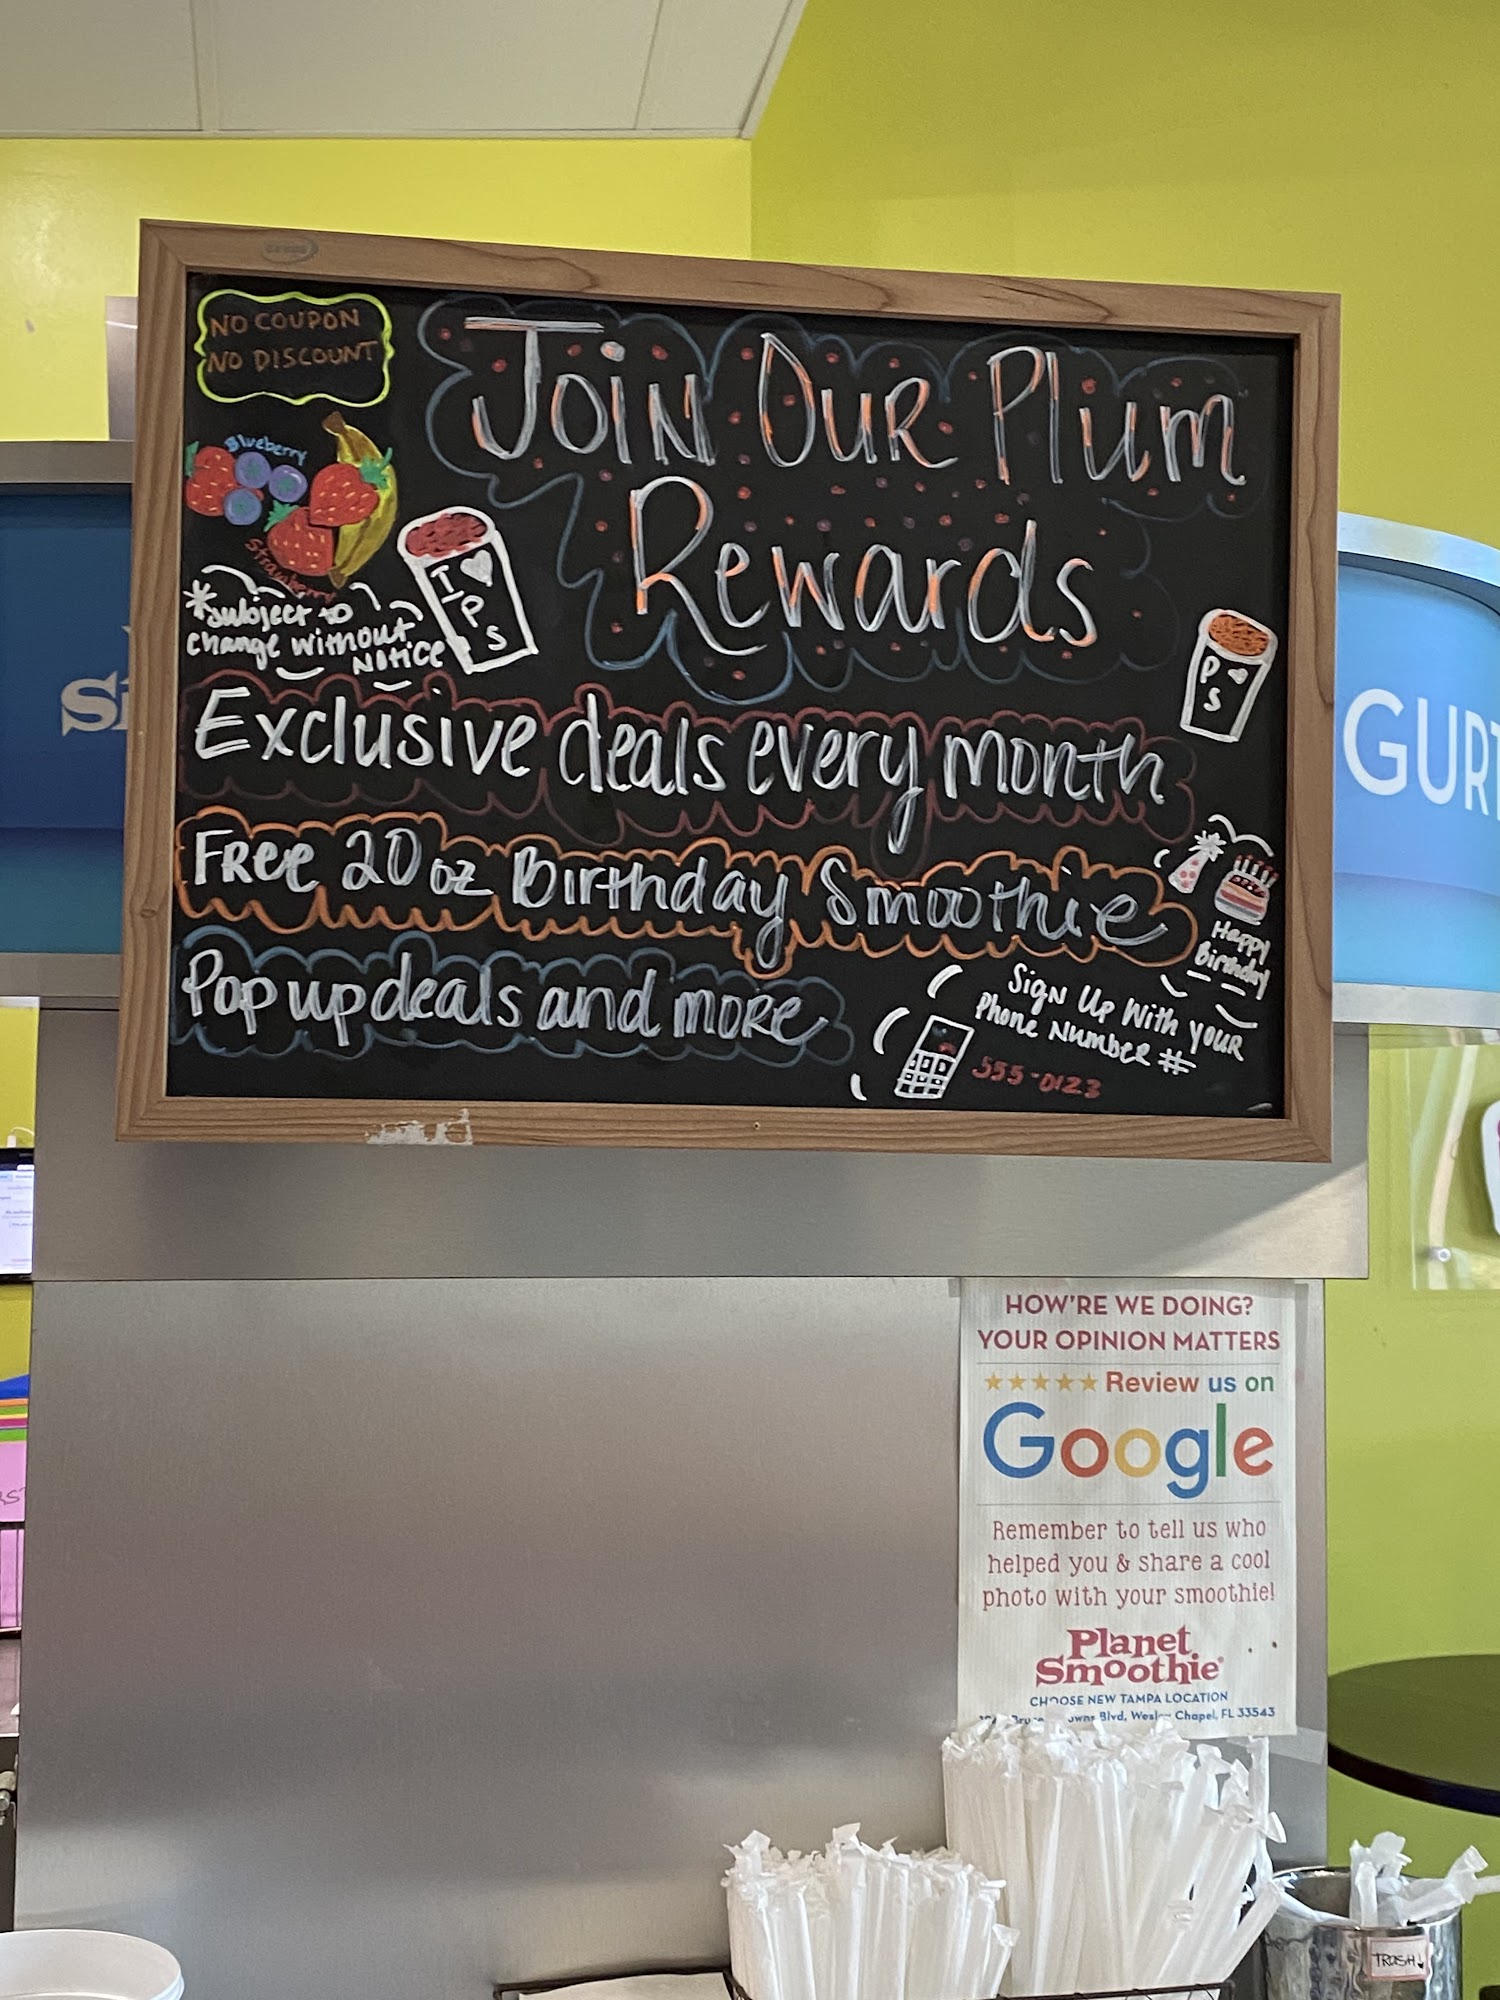 NO COUPON
NO DISCOUNT
Join Our Plum
Rewards
Blueberry
Strawberry
I
P
S
*Subject to
change without
Notice
P
S
Exclusive deals every month
Free 20 oz Birthday Smoothie
Happy
Birthday
Pop up deals and more
Sign Up With your
Phone Number #
555-0123
GURT
HOW'RE WE DOING?
YOUR OPINION MATTERS
Review us on
Google
Remember to tell us who
helped you & share a cool
photo with your smoothie!
Planet
Smoothie®
CHOOSE NEW TAMPA LOCATION
Blvd, Wesley Chapel, FL 33543
TRASH!